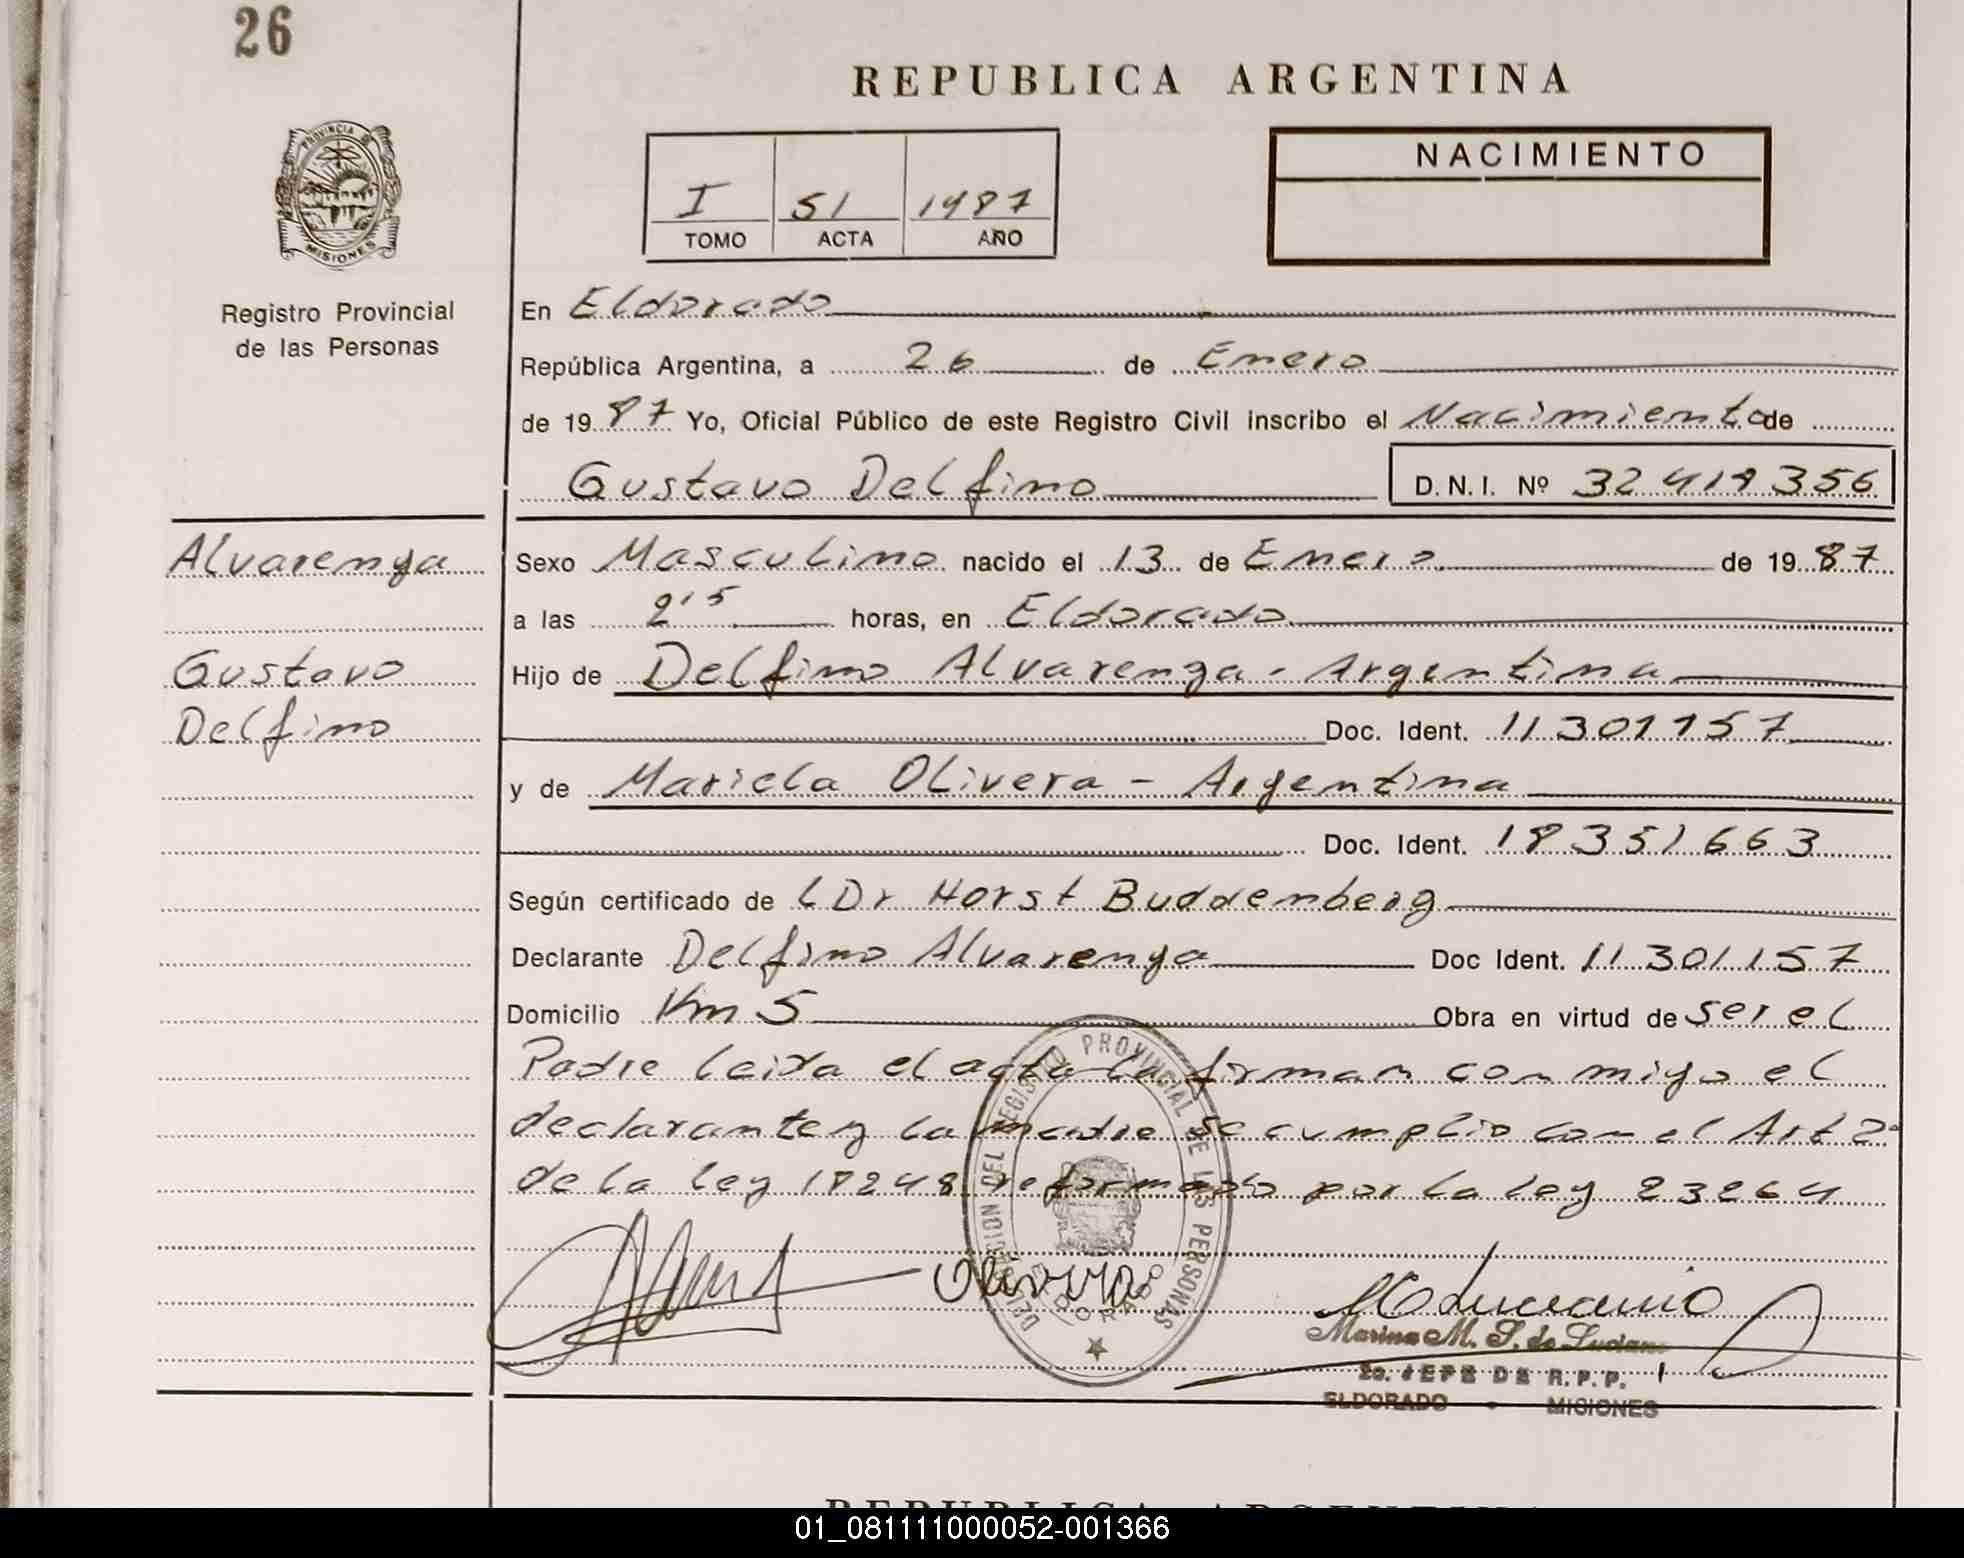 26
REPUBLICA ARGENTINA
PROVINCIA DE
MISIONES
NACIMIENTO
I 51 1987
TOMO ACTA AÑO
Registro Provincial
de las Personas
En Eldorado
República Argentina, a 26 de Enero
de 1987 Yo, Oficial Público de este Registro Civil inscribo el Nacimiento de
Gustavo Delfino D.N.I. Nº
Alvarenga
Gustavo
Delfino
Sexo Masculino nacido el 13 de Enero de 1987
a las 2'15 horas, en Eldorado
Hijo de Delfino Alvarenga - Argentina
Doc. Ident. 11301157
y de Mariela Olivera - Argentina
Doc. Ident. 18351663
Según certificado de l Dr Horst Buddemberg
Declarante Delfino Alvarenga Doc Ident. 11301157
Domicilio Km 5 Obra en virtud de ser el
Padre leida el acta la firman conmigo el
declarante y la madre se cumplio con el Art 2º
de la ley 18248 reformado por la ley 23264
DIRECCION DEL REGISTRO PROVINCIAL DE LAS PERSONAS
ELDORADO
Olivera
Marina M. S. de Luciano
2o. JEFE DE R.P.P.
ELDORADO - MISIONES
REPUBLICA ARGENTINA
01_081111000052-001366